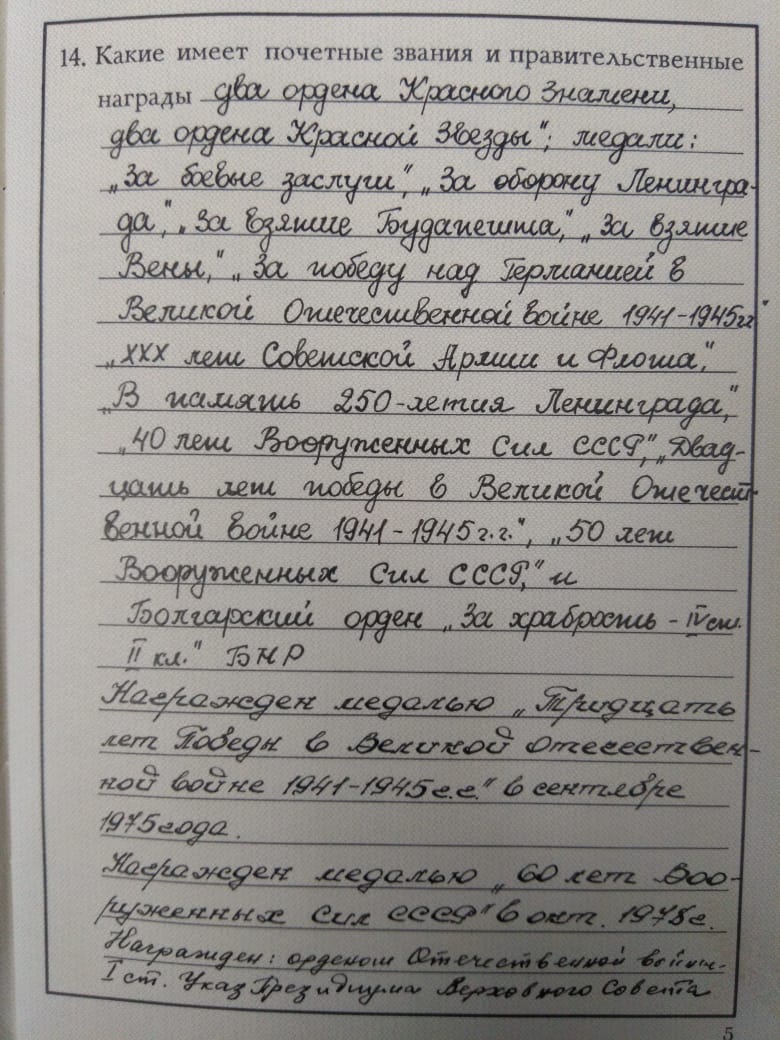 14. Какие имеет почетные звания и правительственные
награды два ордена Красного Знамени,
два ордена Красной Звезды"; медали:
„За боевые заслуги", „За оборону Ленингра-
да", „За взятие Будапешта", „За взятие
Вены", „За победу над Германией в
Великой Отечественной войне 1941-1945гг"
„XXX лет Советской Армии и Флота",
„В память 250-летия Ленинграда",
„40 лет Вооруженных Сил СССР", „Двад-
цать лет победы в Великой Отечест-
венной войне 1941-1945г.г.", „50 лет
Вооруженных Сил СССР," и
Болгарский орден „За храбрость - IV ст.
II кл." БНР
Награжден медалью „Тридцать
лет Победы в Великой Отечествен-
ной войне 1941-1945г.г." в сентябре
1975года.
Награжден медалью „60 лет Воо-
руженных Сил СССР" в окт. 1978г.
Награжден: орденом Отечественной войны-
I ст. Указ Президиума Верховного Совета
5